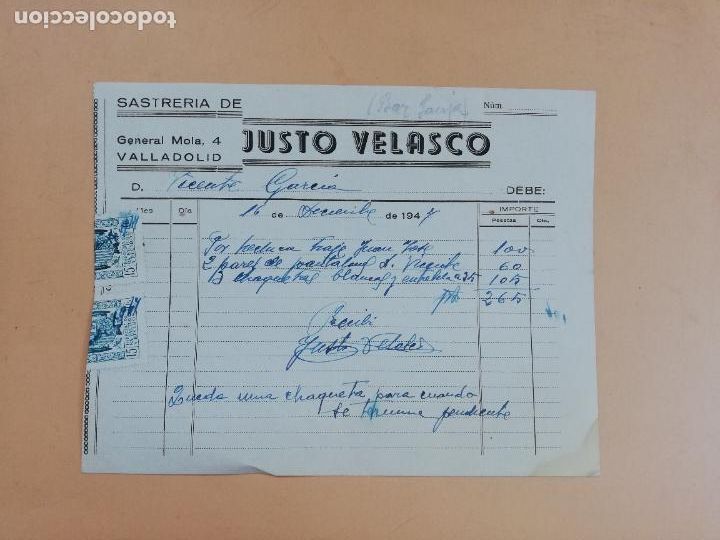 todocoleccion.net
SASTRERIA DE
Núm.
General Mola, 4
VALLADOLID
JUSTO VELASCO
D. Vicente García DEBE:
Mes Día 16 de Diciembre de 1947 IMPORTE
Pesetas Cts.
Por hechura traje Juan José 100
2 pares de pantalones D. Vicente 60
3 chaquetas blancas y a 35 105
pts 265
Recibí
Justo Velasco
Queda una chaqueta para cuando
se termine pendiente
15
15